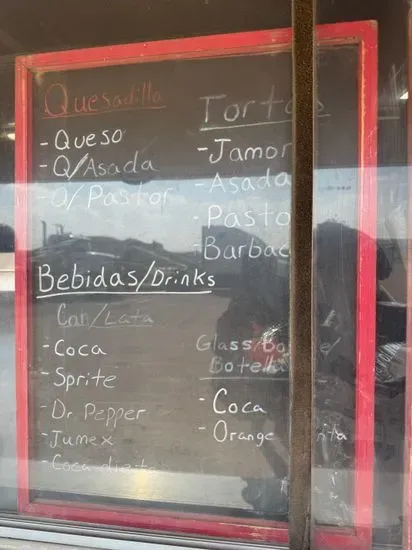 Quesadilla
- Queso
- Q/Asada
- Q/Pastor
Tortas
- Jamon
- Asada
- Pasto
- Barbac
Bebidas/Drinks
Can/Lata
- Coca
- Sprite
- Dr. Pepper
- Jumex
- Coca diet
Glass/Bo e/
Botella
- Coca
- Orange nta